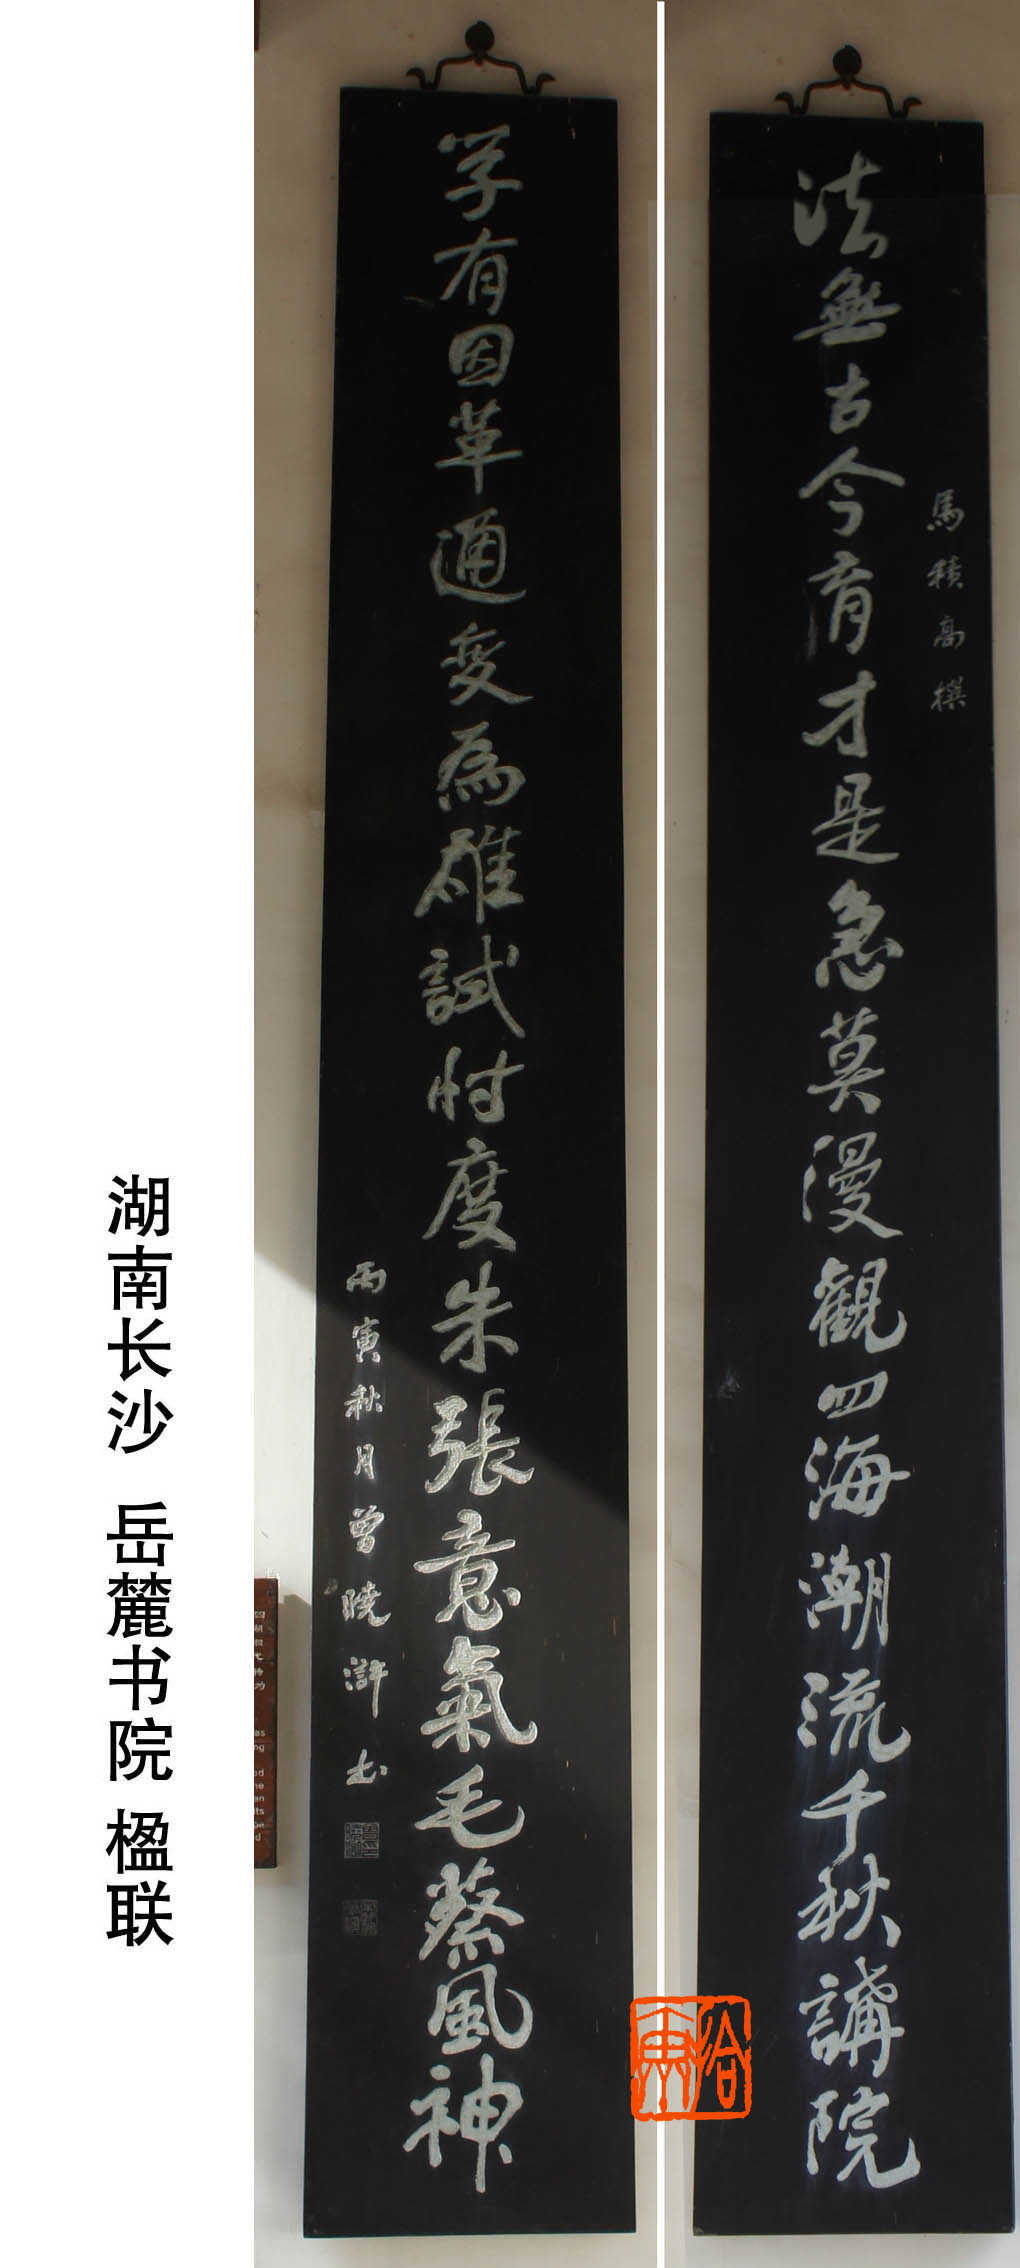 馬積高撰
法無古今育才是急莫漫觀四海潮流千秋講院
学有因革通變為雄試忖度朱張意氣毛蔡風神
丙寅秋月曾曉滸书
湖南长沙 岳麓书院 楹联